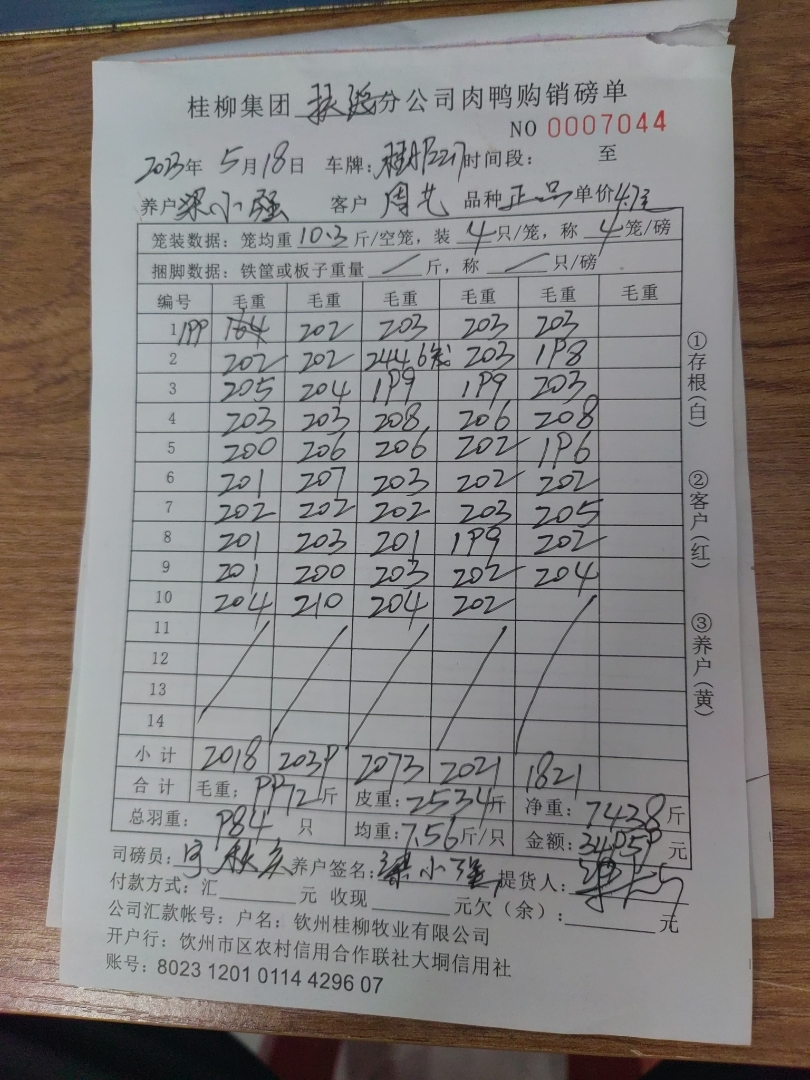 桂柳集团 扶绥分公司肉鸭购销磅单
NO 0007044
2023年 5月18日 车牌: 时间段: 至
养户 梁小强 客户 周艺 品种 正品 单价4.7元
笼装数据: 笼均重 10.3 斤/空笼, 装 4 只/笼, 称 4 笼/磅
捆脚数据: 铁筐或板子重量 / 斤, 称 / 只/磅
编号 毛重 毛重 毛重 毛重 毛重 毛重
1 199 164 202 203 203 203
2 202 202 244 6笼 203 198
3 205 204 199 199 203
4 203 203 208 206 208
5 200 206 206 202 196
6 201 207 203 202 202
7 202 202 202 203 205
8 201 203 201 199 202
9 201 200 203 202 204
10 204 210 204 202
11
12
13
14
小计 2018 2039 2073 2021 1821
合计 毛重: 9972斤 皮重: 2534斤 净重: 7438斤
总羽重: 984 只 均重: 7.56斤/只 金额: 34959元
司磅员: 养户签名: 梁小强 提货人:
付款方式: 汇 元 收现 元欠(余): 元
公司汇款帐号: 户名: 钦州桂柳牧业有限公司
开户行: 钦州市区农村信用合作联社大垌信用社
账号: 8023 1201 0114 4296 07
①存根(白)
②客户(红)
③养户(黄)